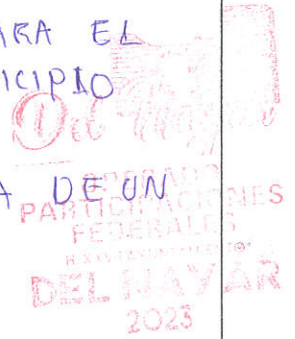 ARA EL
ICIPIO
Del Nayar
A DE UN
OPERADO
PARTICIPACIONES
FEDERALES
H. XXVII AYUNTAMIENTO
DEL NAYAR
2023